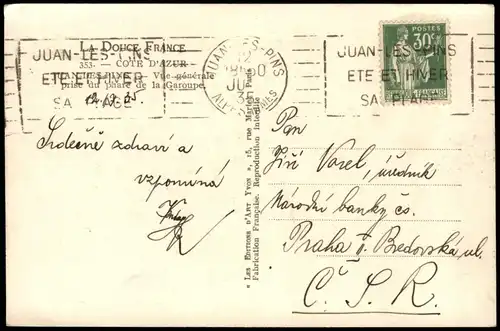 La Douce France
353- — COTE D'AZUR
JUAN-LES-PINS — Vue générale
prise du phare de la Garoupe.
JUAN-LES-PINS
ETE ET HIVER
SA PLAGE
JUAN-LES-PINS
12
JUAN-LES-PINS
ETE ET HIVER
SA PLAGE
POSTES
30c
Srdečně zdraví a
vzpomíná
« Les Editions d'Art Yvon », 15, rue Martel, Paris
Fabrication Française. Reproduction interdite
Pan
Jiří Vosel, úředník
Národní banky čs.
Praha II. Bredovská ul.
Č. S. R.